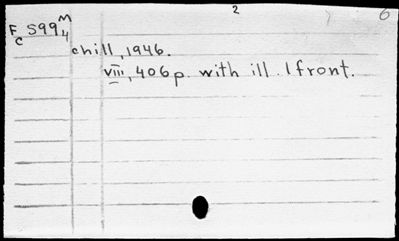 2
6
F S99 M
C 4
chill, 1946.
viii, 406p. with ill. 1 front.